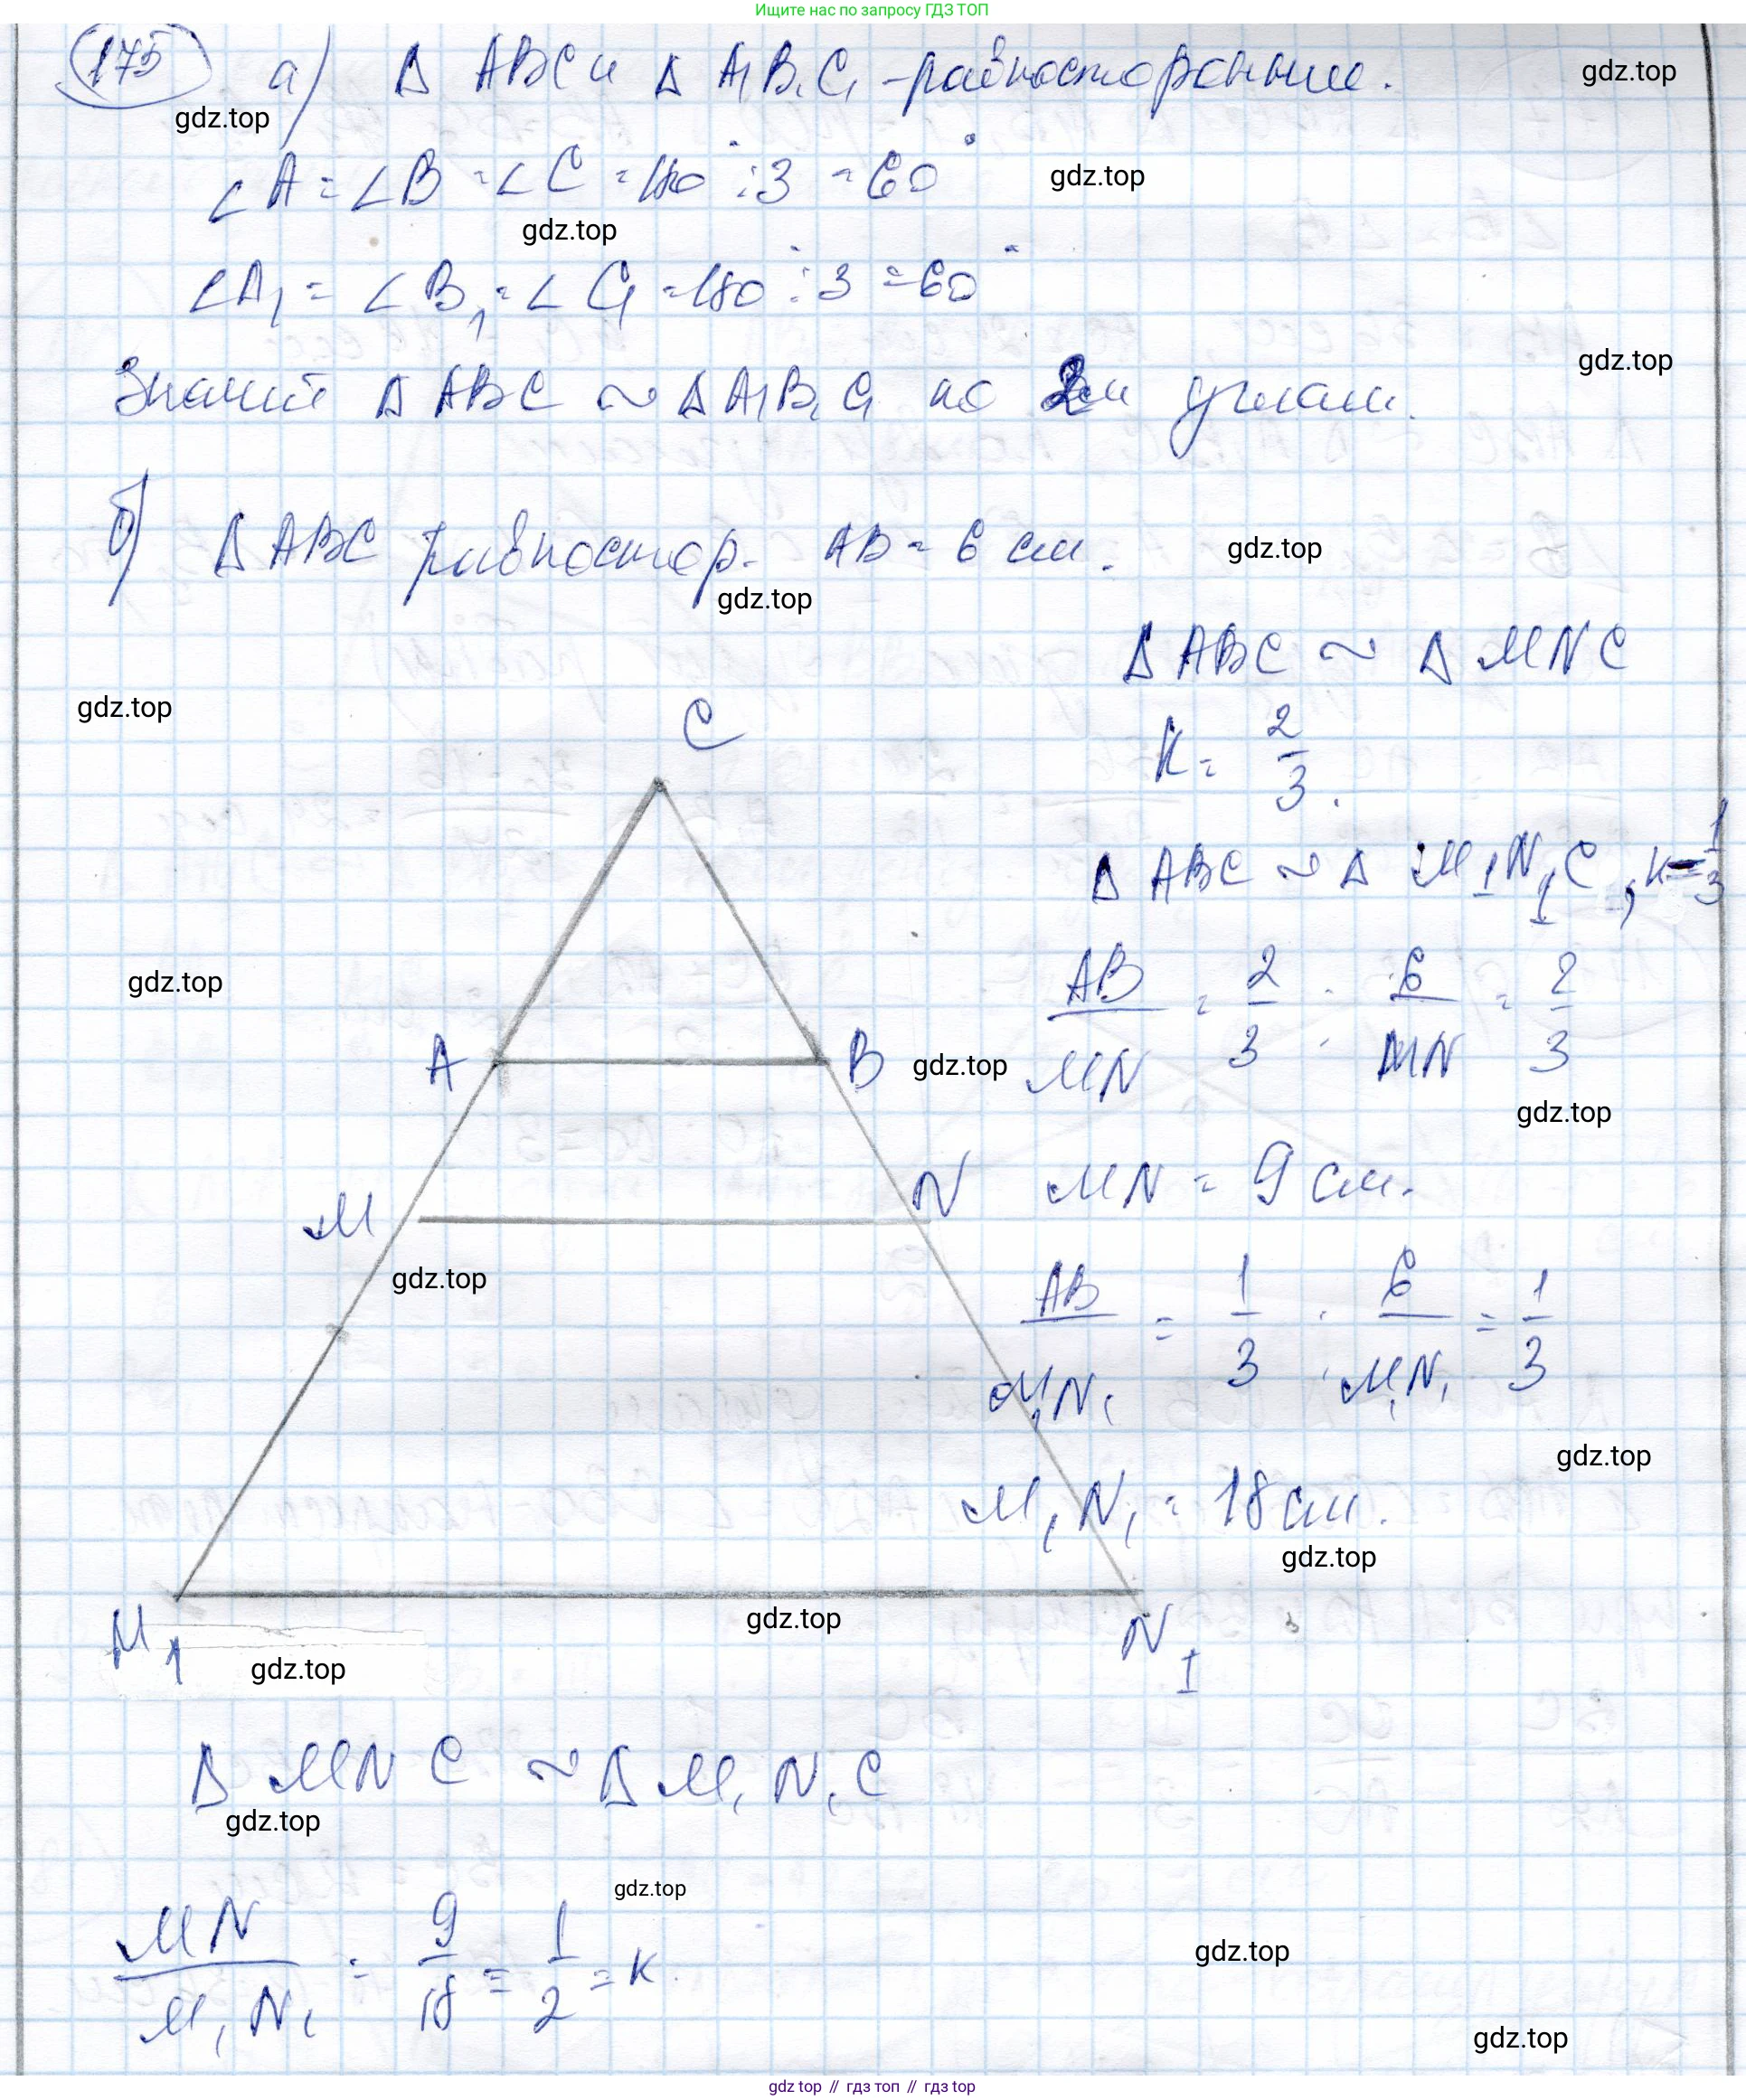 Ищите нас по запросу ГДЗ ТОП
175 а) Δ ABC и Δ A₁B₁C₁ - равносторонние.
gdz.top
gdz.top
∠A = ∠B = ∠C = 180° : 3 = 60°
gdz.top
gdz.top
∠A₁ = ∠B₁ = ∠C₁ = 180° : 3 = 60°
gdz.top
Значит Δ ABC ~ Δ A₁B₁C₁ по 2м углам.
б) Δ ABC равностор. AB = 6 см.
gdz.top
gdz.top
Δ ABC ~ Δ MNC
gdz.top
C
K = 2/3.
Δ ABC ~ Δ M₁N₁C, K = 1/3
gdz.top
AB/MN = 2/3 ; 6/MN = 2/3
A
B
gdz.top
gdz.top
M
N
MN = 9 см.
gdz.top
AB/M₁N₁ = 1/3 ; 6/M₁N₁ = 1/3
gdz.top
M₁N₁ = 18 см.
gdz.top
gdz.top
M₁
N₁
gdz.top
Δ MNC ~ Δ M₁N₁C
gdz.top
gdz.top
MN/M₁N₁ = 9/18 = 1/2 = K.
gdz.top
gdz.top
gdz top // гдз топ // гдз top